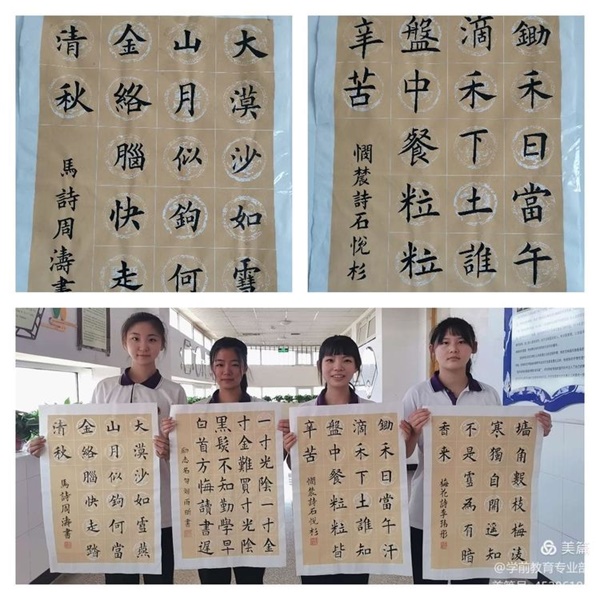 大漠沙如雪
山月似鉤何
金絡腦快走
清秋
馬詩周濤書
鋤禾日當午
滴禾下土誰
盤中餐粒粒
辛苦
憫農詩石悅杉
大漠沙如雪燕
山月似鉤何當
金絡腦快走踏
清秋
馬詩周濤書
一寸光陰一寸金
寸金難買寸光陰
黑髮不知勤學早
白首方悔讀書遲
鋤禾日當午汗
滴禾下土誰知
盤中餐粒粒皆
辛苦
憫農詩石悅杉
墻角數枝梅凌
寒獨自開遥知
不是雪為有暗
香來
梅花詩李
美篇
@学前教育专业部